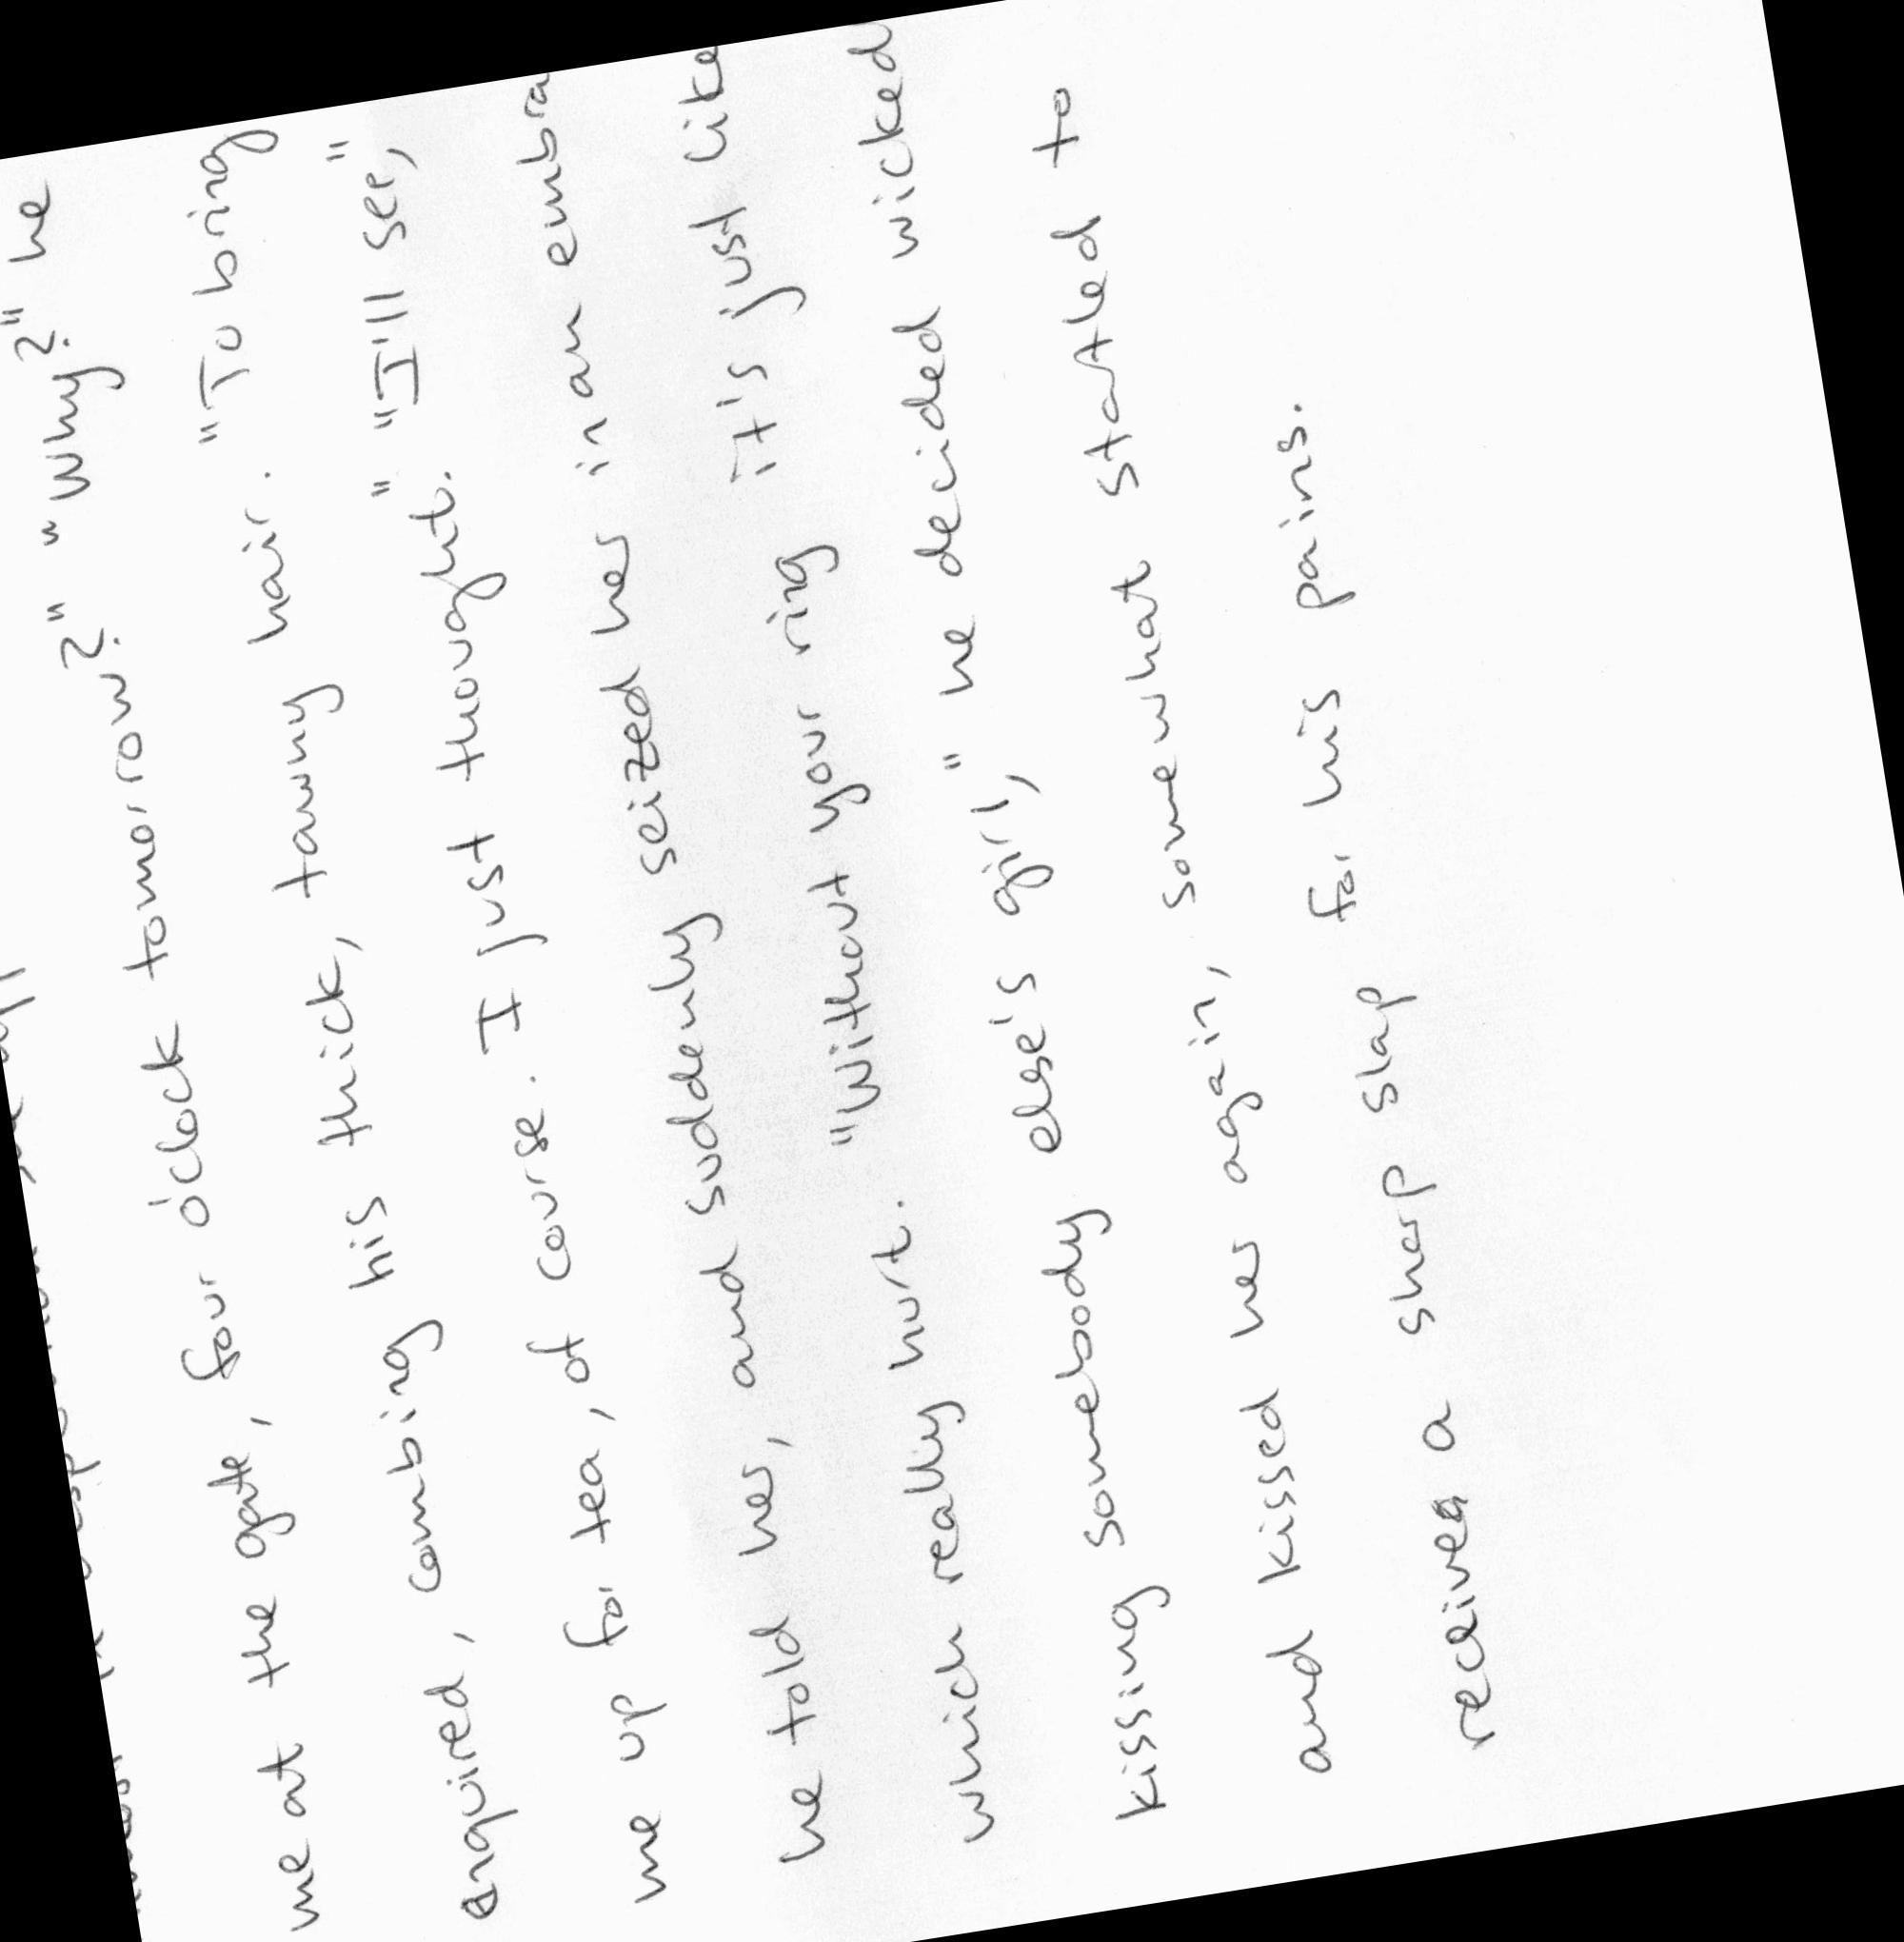 me at the gate, four o'clock tomorrow?" "Why?" he
enquired, combing his thick, tawny hair. "To bring
me up for tea, of course. I just thought." "I'll see,"
he told her, and suddenly seized her in an embra
which really hurt. "Without your ring it's just like
kissing somebody else's girl," he decided wicked
and kissed her again, somewhat startled to
receives a sharp slap for his pains.